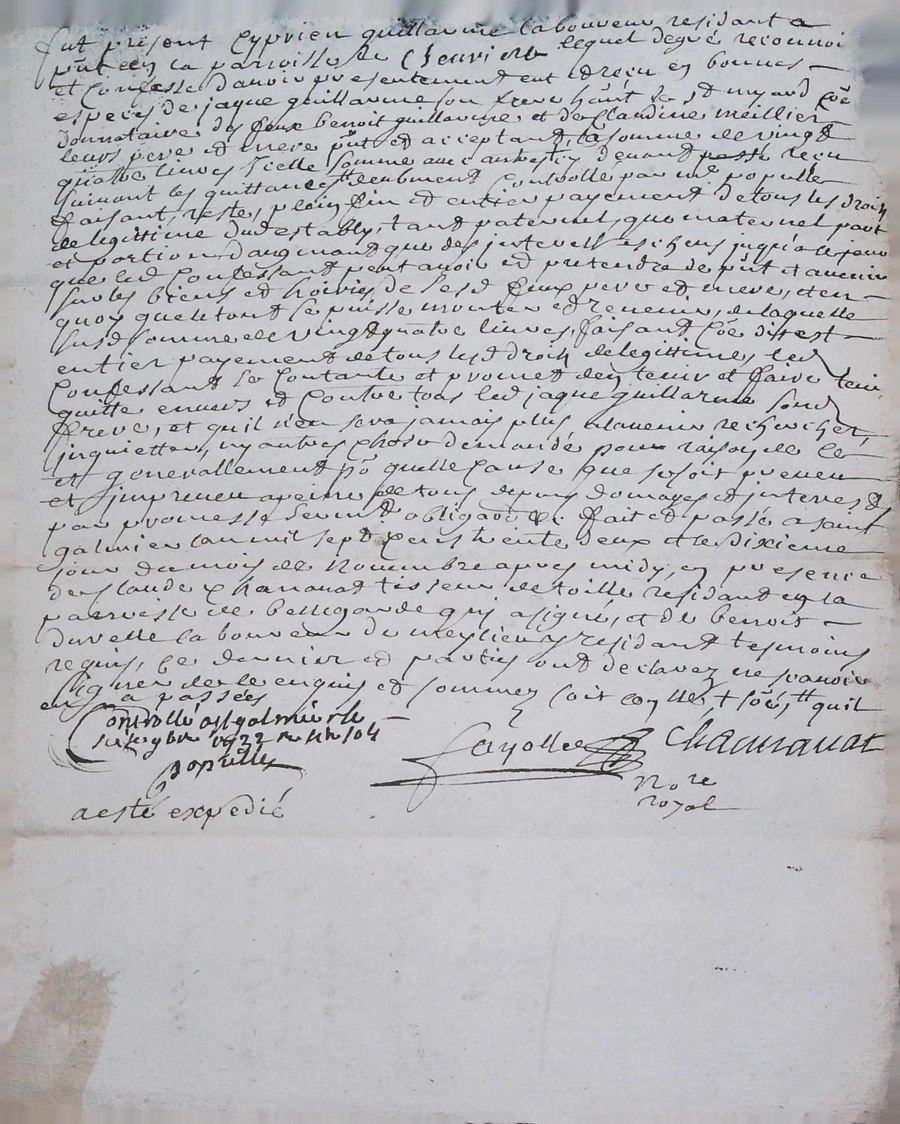 fut présent Cyprien guillaume laboureur residant a
put en la parroisse de Chenrieth lequel de gré reconnoi
et Confesse d'avoir presentement eut et reçu en bonnes
especes de jaque guillaume son frere hant le st myard Coe
donnataire des feux benoit guillaume et de Claudine meillier
leurs pere et mere put et acceptant, la somme de vingt
quattre livres Icelle somme avec autres cy devant reçu
suivant les quittances deubment Controllé par me populle
faisant, reste, plein, fin et entier payement de tous les droits
de legittime dud establ, tant paternel, que maternel part
et portion d'augmant que des jnterest eschus jusqu'a ce jour
que led Confessant peut avoir et pretendre de put et avenir
sur les biens et hoiries de sesd feux pere et mere, et en
quoy que le tout se puisse monter et revenir, de laquelle
susd somme de vingt quatre livres, faisant Coe dit est
entier payement de tous lesd droits de legittime, led
Confessant se Contante et promet d'en tenir et faire tenir
quitte envers et Contre tous led jaque guillaume sond
frere, et qu'il n'en sera jamais plus a l'avenir rechercher,
jnquietter, ny autres chose demandée pour raison de ce
et generallement po quelle Cause que se soit preveu
et jmpreveu a peine de tous depans domages et jnterests
par promesse serment obligaon fait et passé a saint
galmier l'an mil sept cens trente deux et le dixieme
jour du mois de Novembre apres midy, en presence
de Claude Chanavat tisseur de toille residant en la
parroisse de bellegarde qui a signé, et de benoit
duvelle laboureur de meylieu y residant tesmoins
requis, Ce dernier et parties ont declarez ne scavoir
signer de ce enquis et sommez soit Conllé, tt qu'il
en a passées
Controllé a St galmier le
1732
populle
fayolle Chanavat
No re
royal
a esté expedié